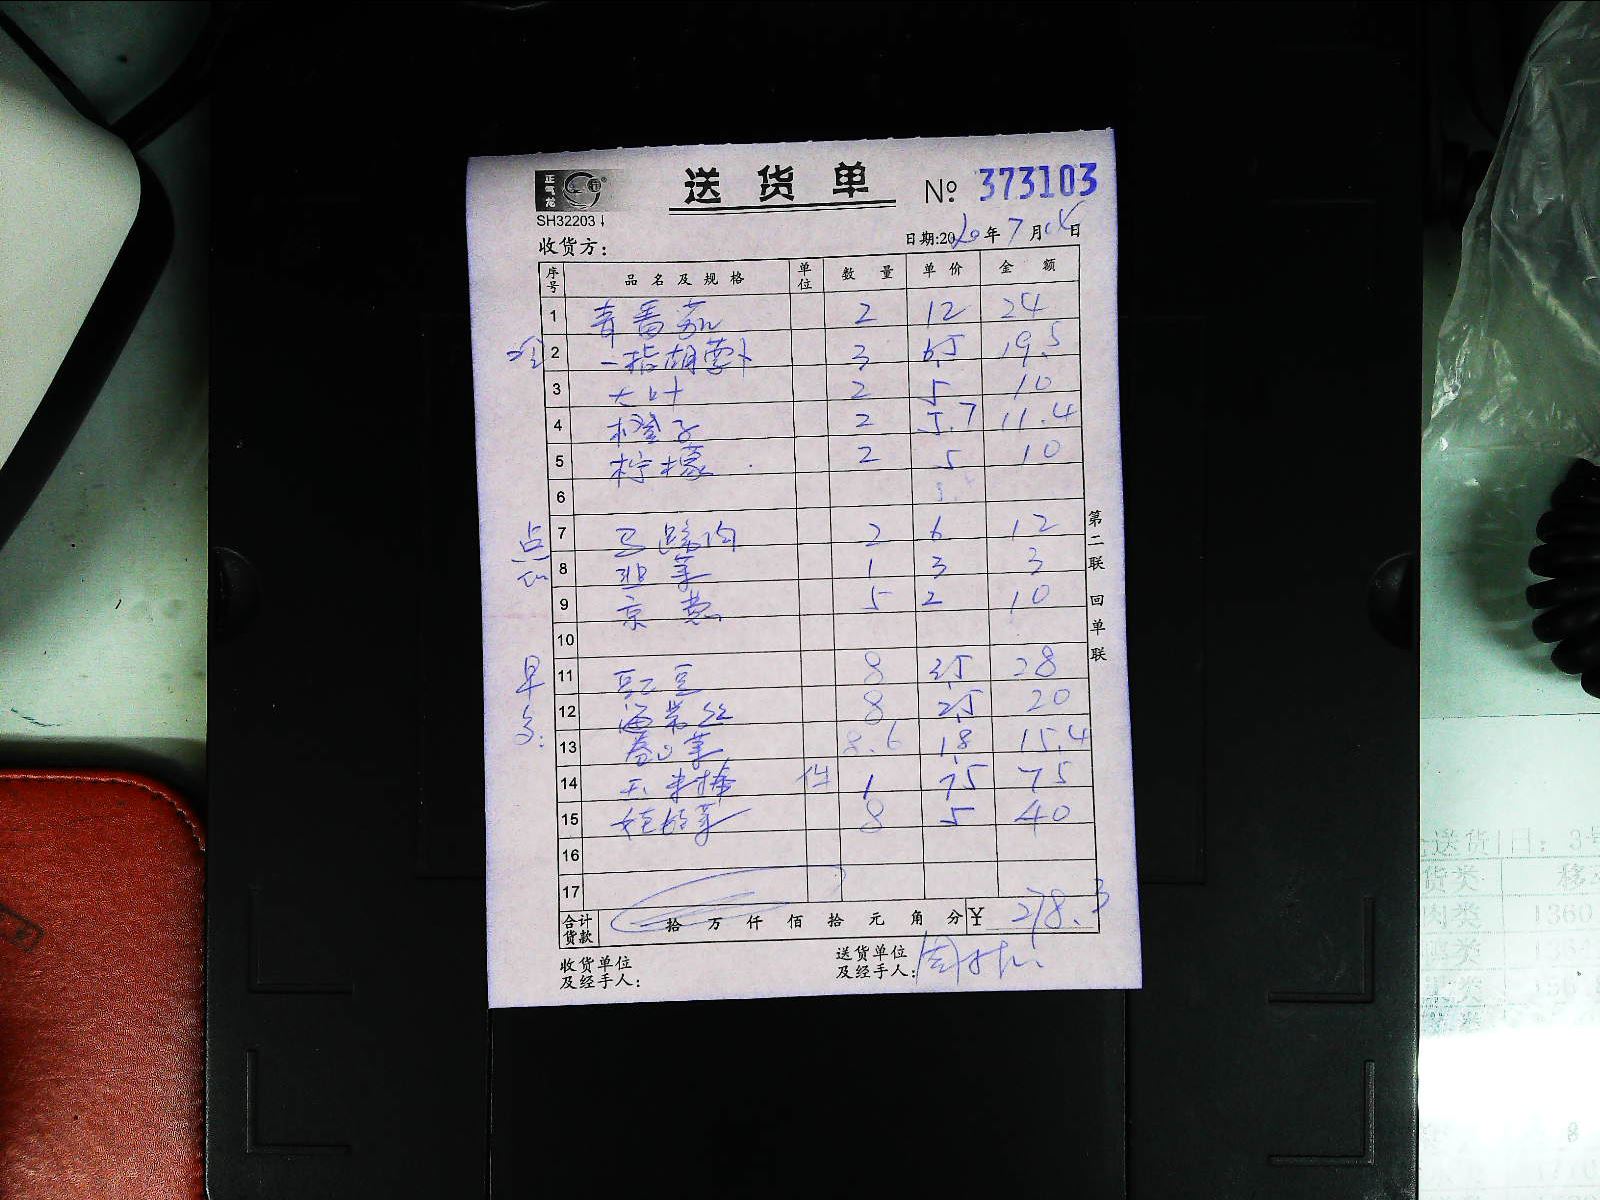 正气龙
送货单 № 373103
SH32203
收货方: 日期:2020年7月 日
序号 品名及规格 单位 数量 单价 金额
1 青番茄 2 12 24
2 一指胡萝卜 3 6.5 19.5
3 大叶 2 5 10
4 橙子 2 5.7 11.4
5 柠檬 2 5 10
6
点心
7 马蹄肉 2 6 12
8 韭菜 1 3 3
9 京葱 5 2 10
10
早
11 豇豆 8 3.5 28
12 海带丝 8 2.5 20
13 卷心菜 8.6 1.8 15.4
14 玉米棒 件 1 75 75
15 娃娃菜 8 5 40
16
17
合计货款 拾万仟佰拾元角分 ¥ 278.3
收货单位及经手人:
送货单位及经手人:
第二联 回单联
送货日: 3号
货类
肉类 1360